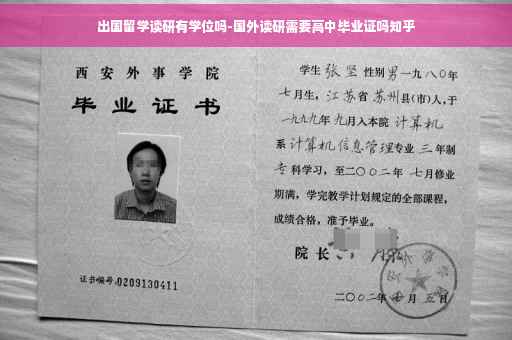 出国留学读研有学位吗-国外读研需要高中毕业证吗知乎
西安外事学院
毕业证书
证书编号:0209130411
学生 张坚 性别 男 一九八〇年
七月生,江苏省 苏州县(市)人,于
一九九九年 九月入本院 计算机
系 计算机信息管理专业 三 年制
专科学习,至二〇〇二年 七月修业
期满,学完教学计划规定的全部课程,
成绩合格,准予毕业。
院长
二〇〇二年 月 五日